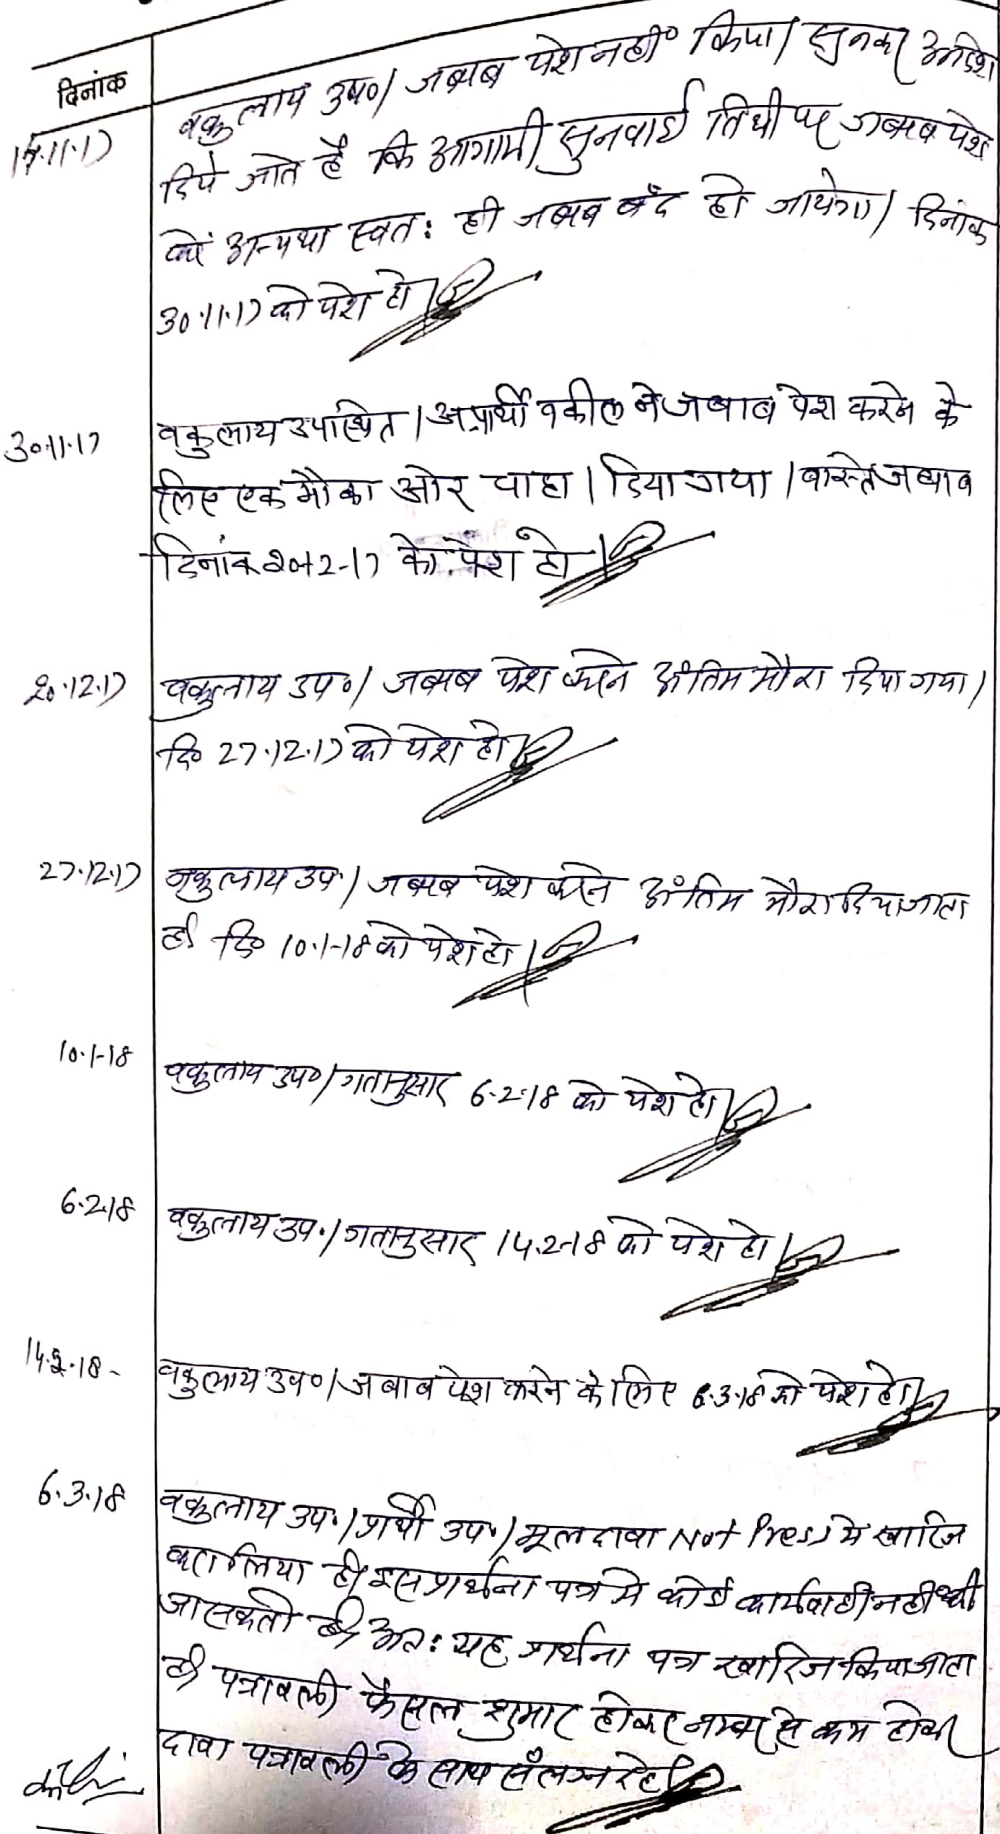 दिनांक
17.11.17 वकुलाय उप०। जबाब पेश नही किया। सुनकर आदेश
दिये जाते है कि आगामी सुनवाई तिथी पर जबाब पेश
करें अन्यथा स्वत: ही जबाब बंद हो जायेगा। दिनांक
30.11.17 को पेश हो।
30.11.17 वकुलाय उपस्थित। अप्रार्थी वकील ने जबाब पेश करने के
लिए एक मौका ओर चाहा। दिया गया। वास्ते जबाब
दिनांक 20-12-17 को पेश हो।
20.12.17 वकुलाय उप०। जबाब पेश करने अंतिम मौका दिया गया।
दि० 27.12.17 को पेश हो।
27.12.17 वकुलाय उप.। जबाब पेश करने अंतिम मौका दिया जाता
है। दि० 10.1-18 को पेश हो।
10.1-18 वकुलाय उप०। गतानुसार 6.2.18 को पेश हो।
6.2.18 वकुलाय उप.। गतानुसार 14.2-18 को पेश हो।
14.2.18- वकुलाय उप०। जबाब पेश करने के लिए 6.3.18 को पेश हो।
6.3.18 वकुलाय उप.। प्रार्थी उप.। मूल दावा Not Press मे खारिज
करा लिया है। इस प्रार्थना पत्र मे कोई कार्यवाही नही की
जा सकती है। अत: यह प्रार्थना पत्र खारिज किया जाता
है। पत्रावली फैसल शुमार होकर नम्बर से कम होकर
दावा पत्रावली के साथ सँलग्न रहे।